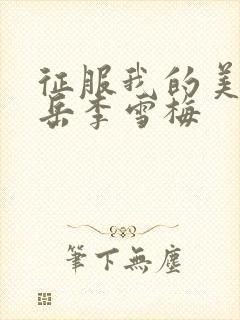 征服我的美
岳李雪梅
筆下無塵